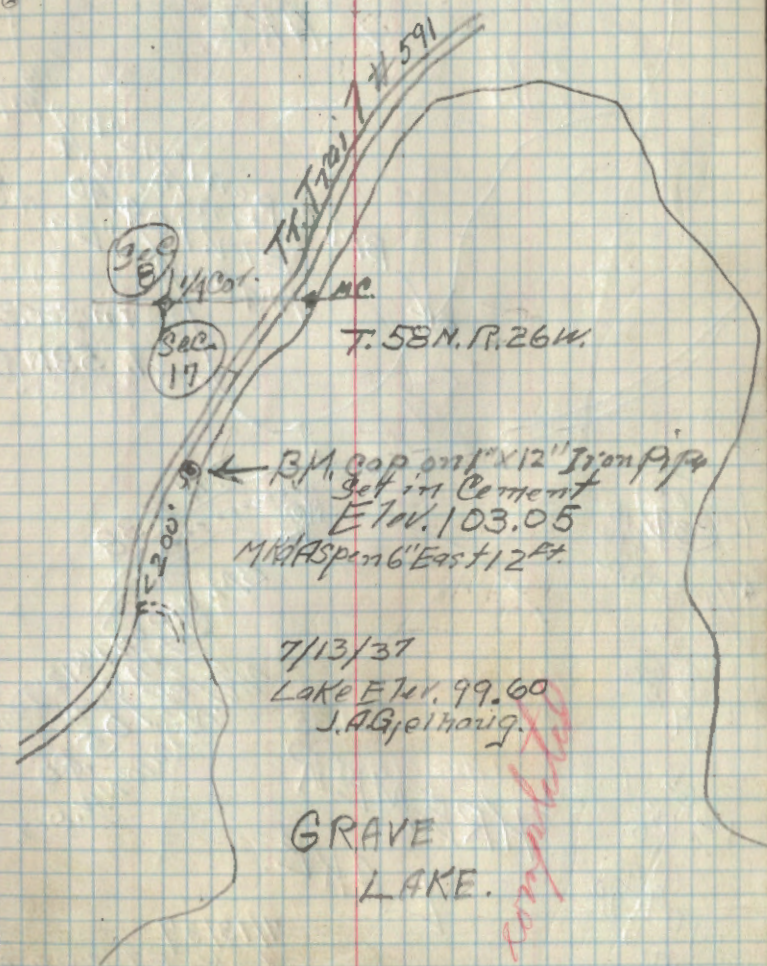 Tk. Trail #591
Sec
8
1/4 Cor.
M.C.
Sec.
17
T. 58 N. R. 26 W.
B.M. Cap on 1" x 12" Iron Pipe
Set in Cement
Elev. 103.05
Mkd Aspen 6" East 12 Ft.
200'
7/13/37
Lake Elev. 99.60
J.A.
GRAVE
LAKE.
completed